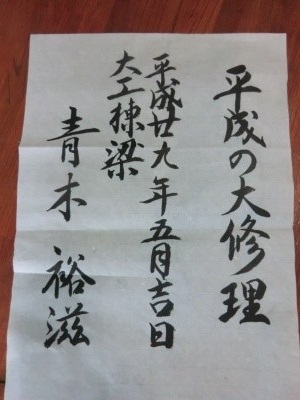 平成の大修理
平成廿九年五月吉日
大工棟梁
青木裕滋